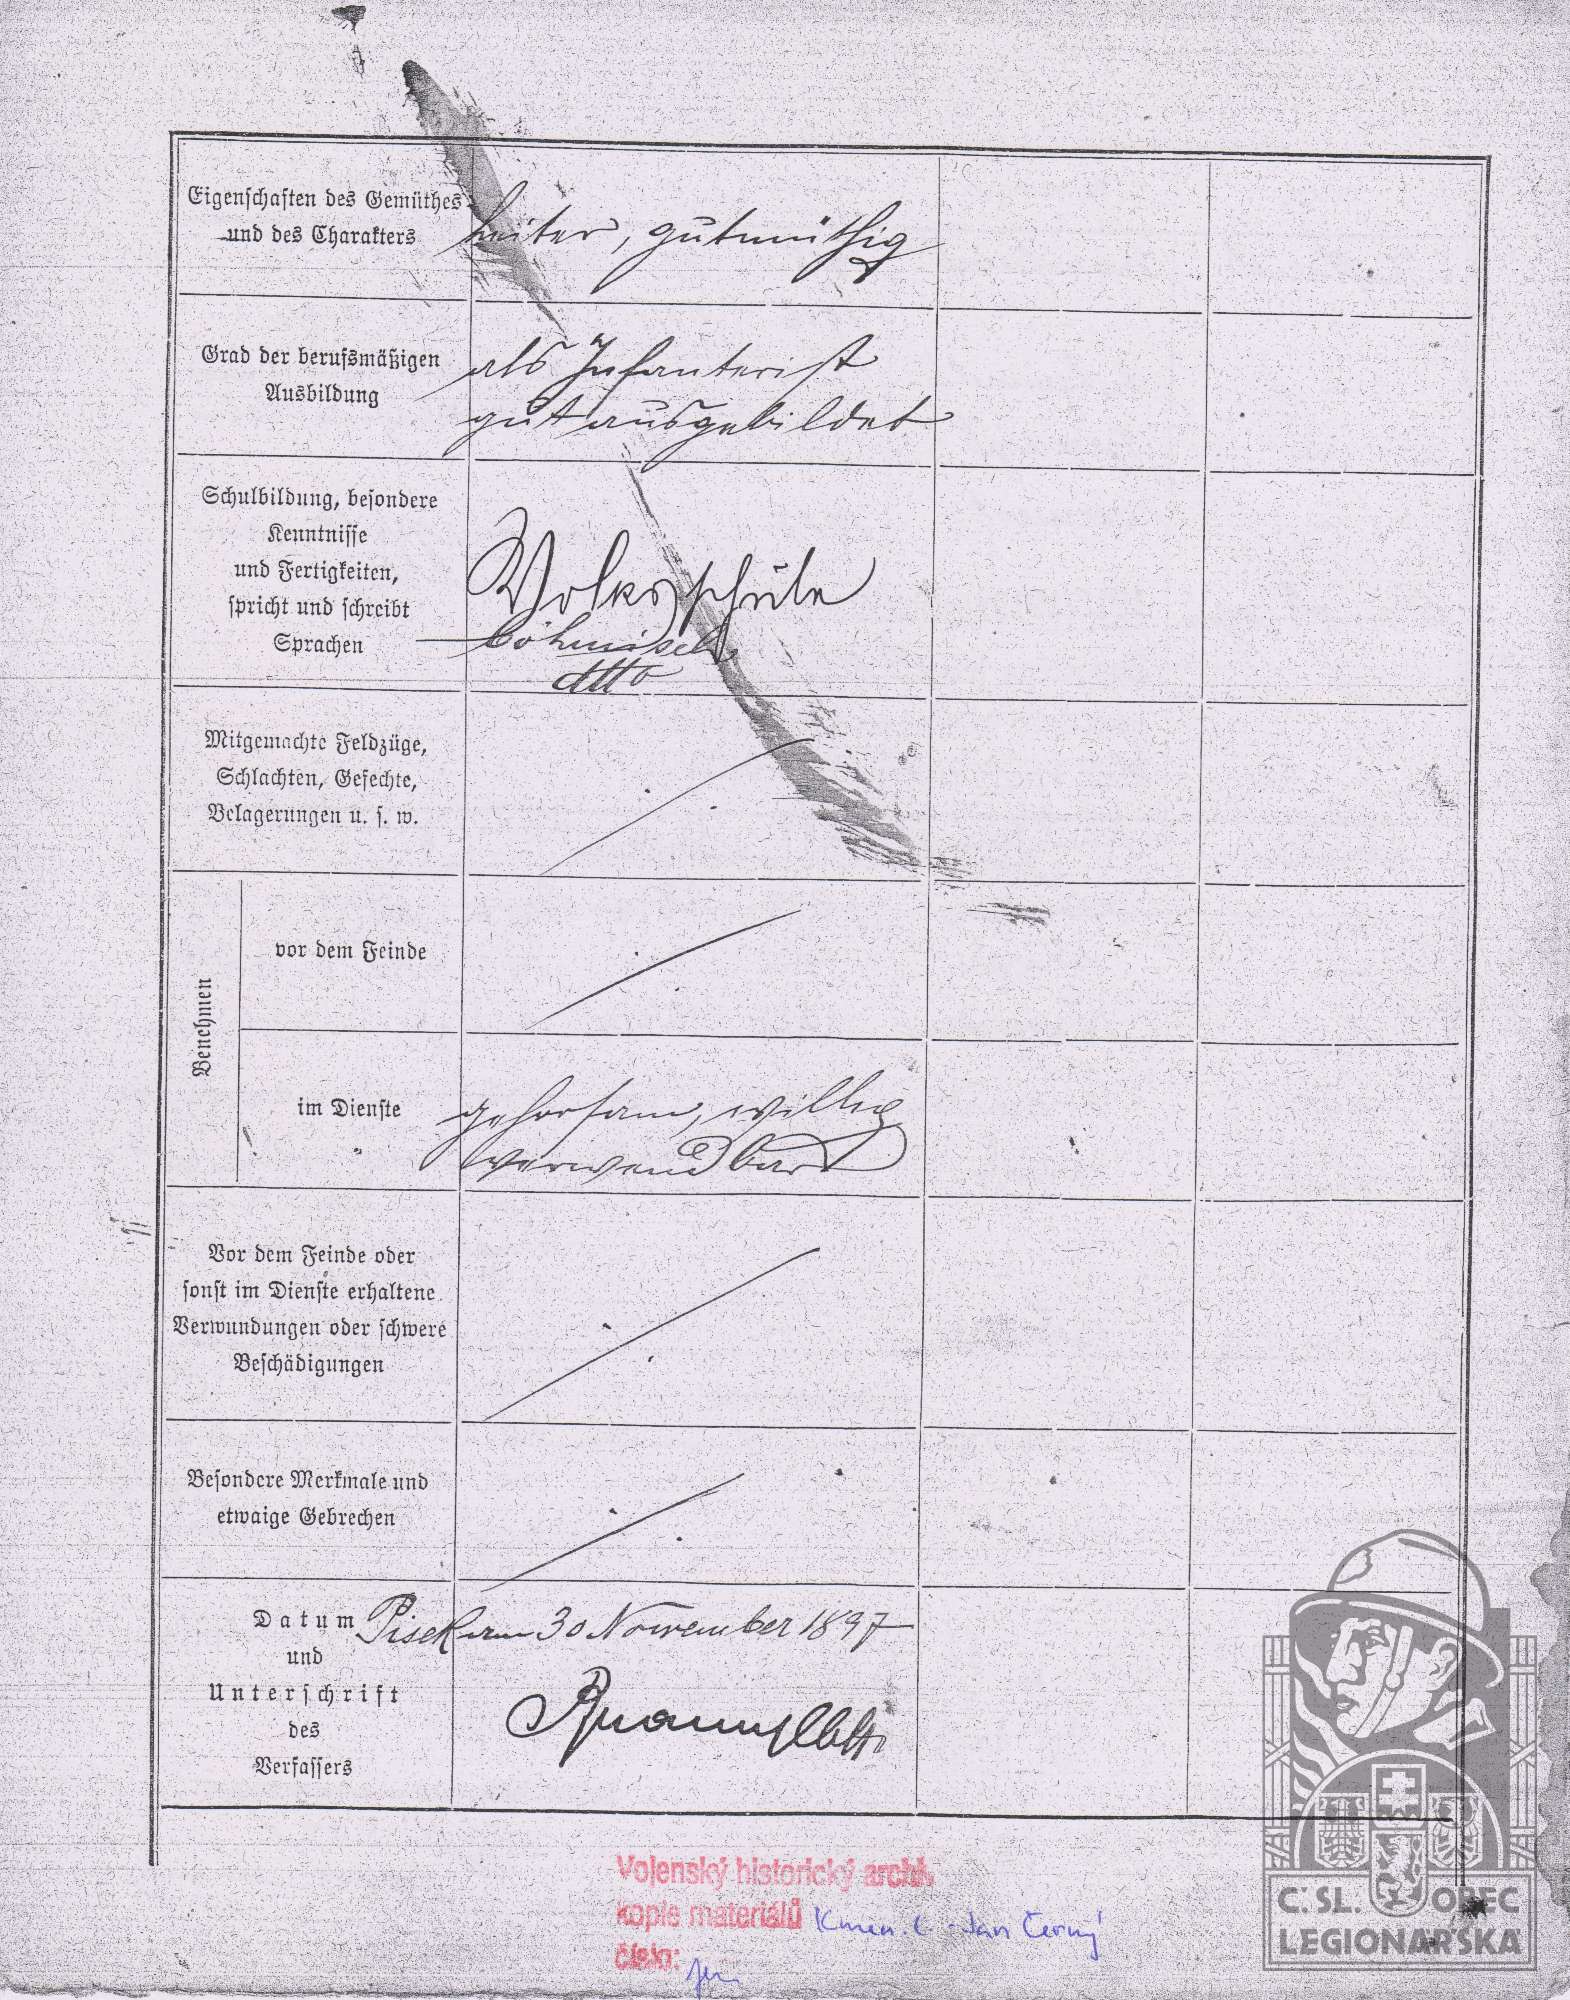 Eigenschaften des Gemüthes
und des Charakters
heiter, gutmüthig
Grad der berufsmäßigen
Ausbildung
als Infanterist
gut ausgebildet
Schulbildung, besondere
Kenntnisse
und Fertigkeiten,
spricht und schreibt
Sprachen
Volksschule
böhmisch
dtto
Mitgemachte Feldzüge,
Schlachten, Gefechte,
Belagerungen u. s. w.
Benehmen
vor dem Feinde
im Dienste
gehorsam, willig
verwendbar
Vor dem Feinde oder
sonst im Dienste erhaltene
Verwundungen oder schwere
Beschädigungen
Besondere Merkmale und
etwaige Gebrechen
Datum
und
Unterschrift
des
Verfassers
Pisek am 30 November 1897
Vojenský historický archiv
kopie materiálů Kmen. l. - Jan Černý
číslo:
Č. SL. OBEC
LEGIONÁŘSKÁ